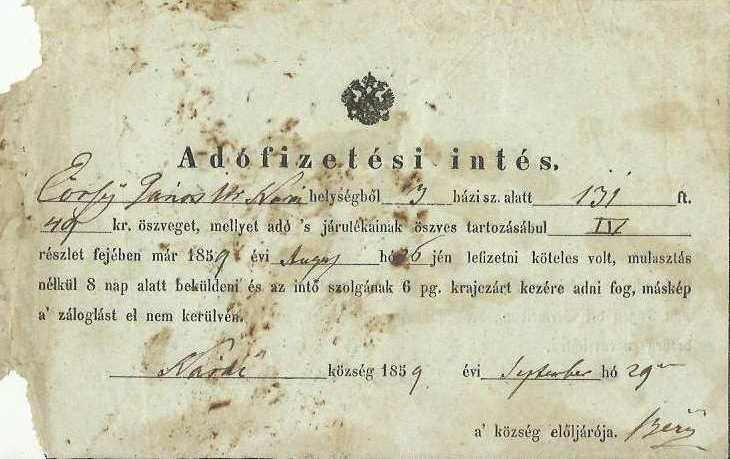 Adófizetési intés.
János helységből házi sz. alatt 131 ft.
49 kr. öszveget, mellyet adó 's járulékainak öszves tartozásábul IV
részlet fejében már 1859 évi Aug hó 26 jén lefizetni köteles volt, mulasztás
nélkül 8 nap alatt beküldeni és az intő szolgának 6 pg. krajczárt kezére adni fog, máskép
a' záloglást el nem kerülvén.
község 1859 évi September hó 29
a' község előljárója.